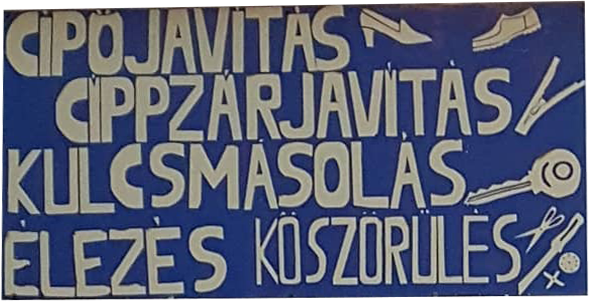 CIPŐJAVÍTÁS
CIPPZÁRJAVÍTÁS
KULCSMÁSOLÁS
ÉLEZÉS KÖSZÖRÜLÉS